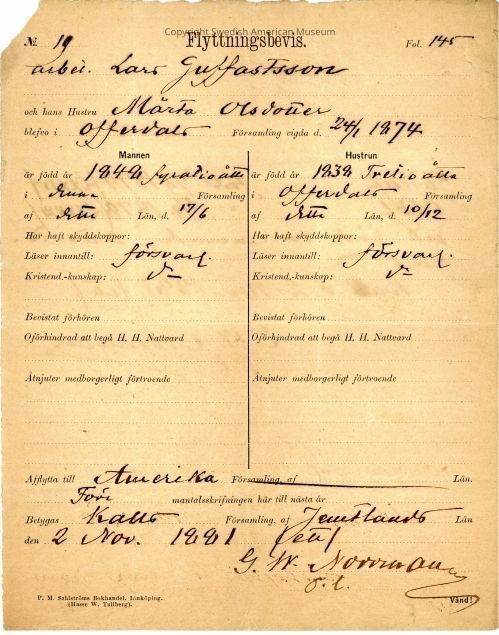 Copyright Swedish American Museum
№ 19 Flyttningsbevis. Fol. 145
arbet. Lars Guffastsson
och hans Hustru Märta Olsdotter
blefvo i Offerdals Församling vigda d. 24/1 1874
Mannen
är född år 1848 fyratioåtta
i denna Församling
af detta Län, d. 17/6
Har haft skyddskoppor:
Läser innantill: försvarl.
Kristend.-kunskap: do
Bevistat förhören
Oförhindrad att begå H. H. Nattvard
Åtnjuter medborgerligt förtroende
Hustrun
är född år 1838 Tretioåtta
i Offerdals Församling
af detta Län, d. 10/12
Har haft skyddskoppor:
Läser innantill: försvarl.
Kristend.-kunskap: do
Bevistat förhören
Oförhindrad att begå H. H. Nattvard
Åtnjuter medborgerligt förtroende
Afflytta till Amerika Församling, af Län.
Före mantalsskrifningen här till nästa år
Betygas Kalls Församling, af Jemtlands Län
den 2 Nov. 1881
G. W. Norrman
P. M. Sahlströms Bokhandel, Linköping.
(Hasse W. Tullberg).
Vänd!